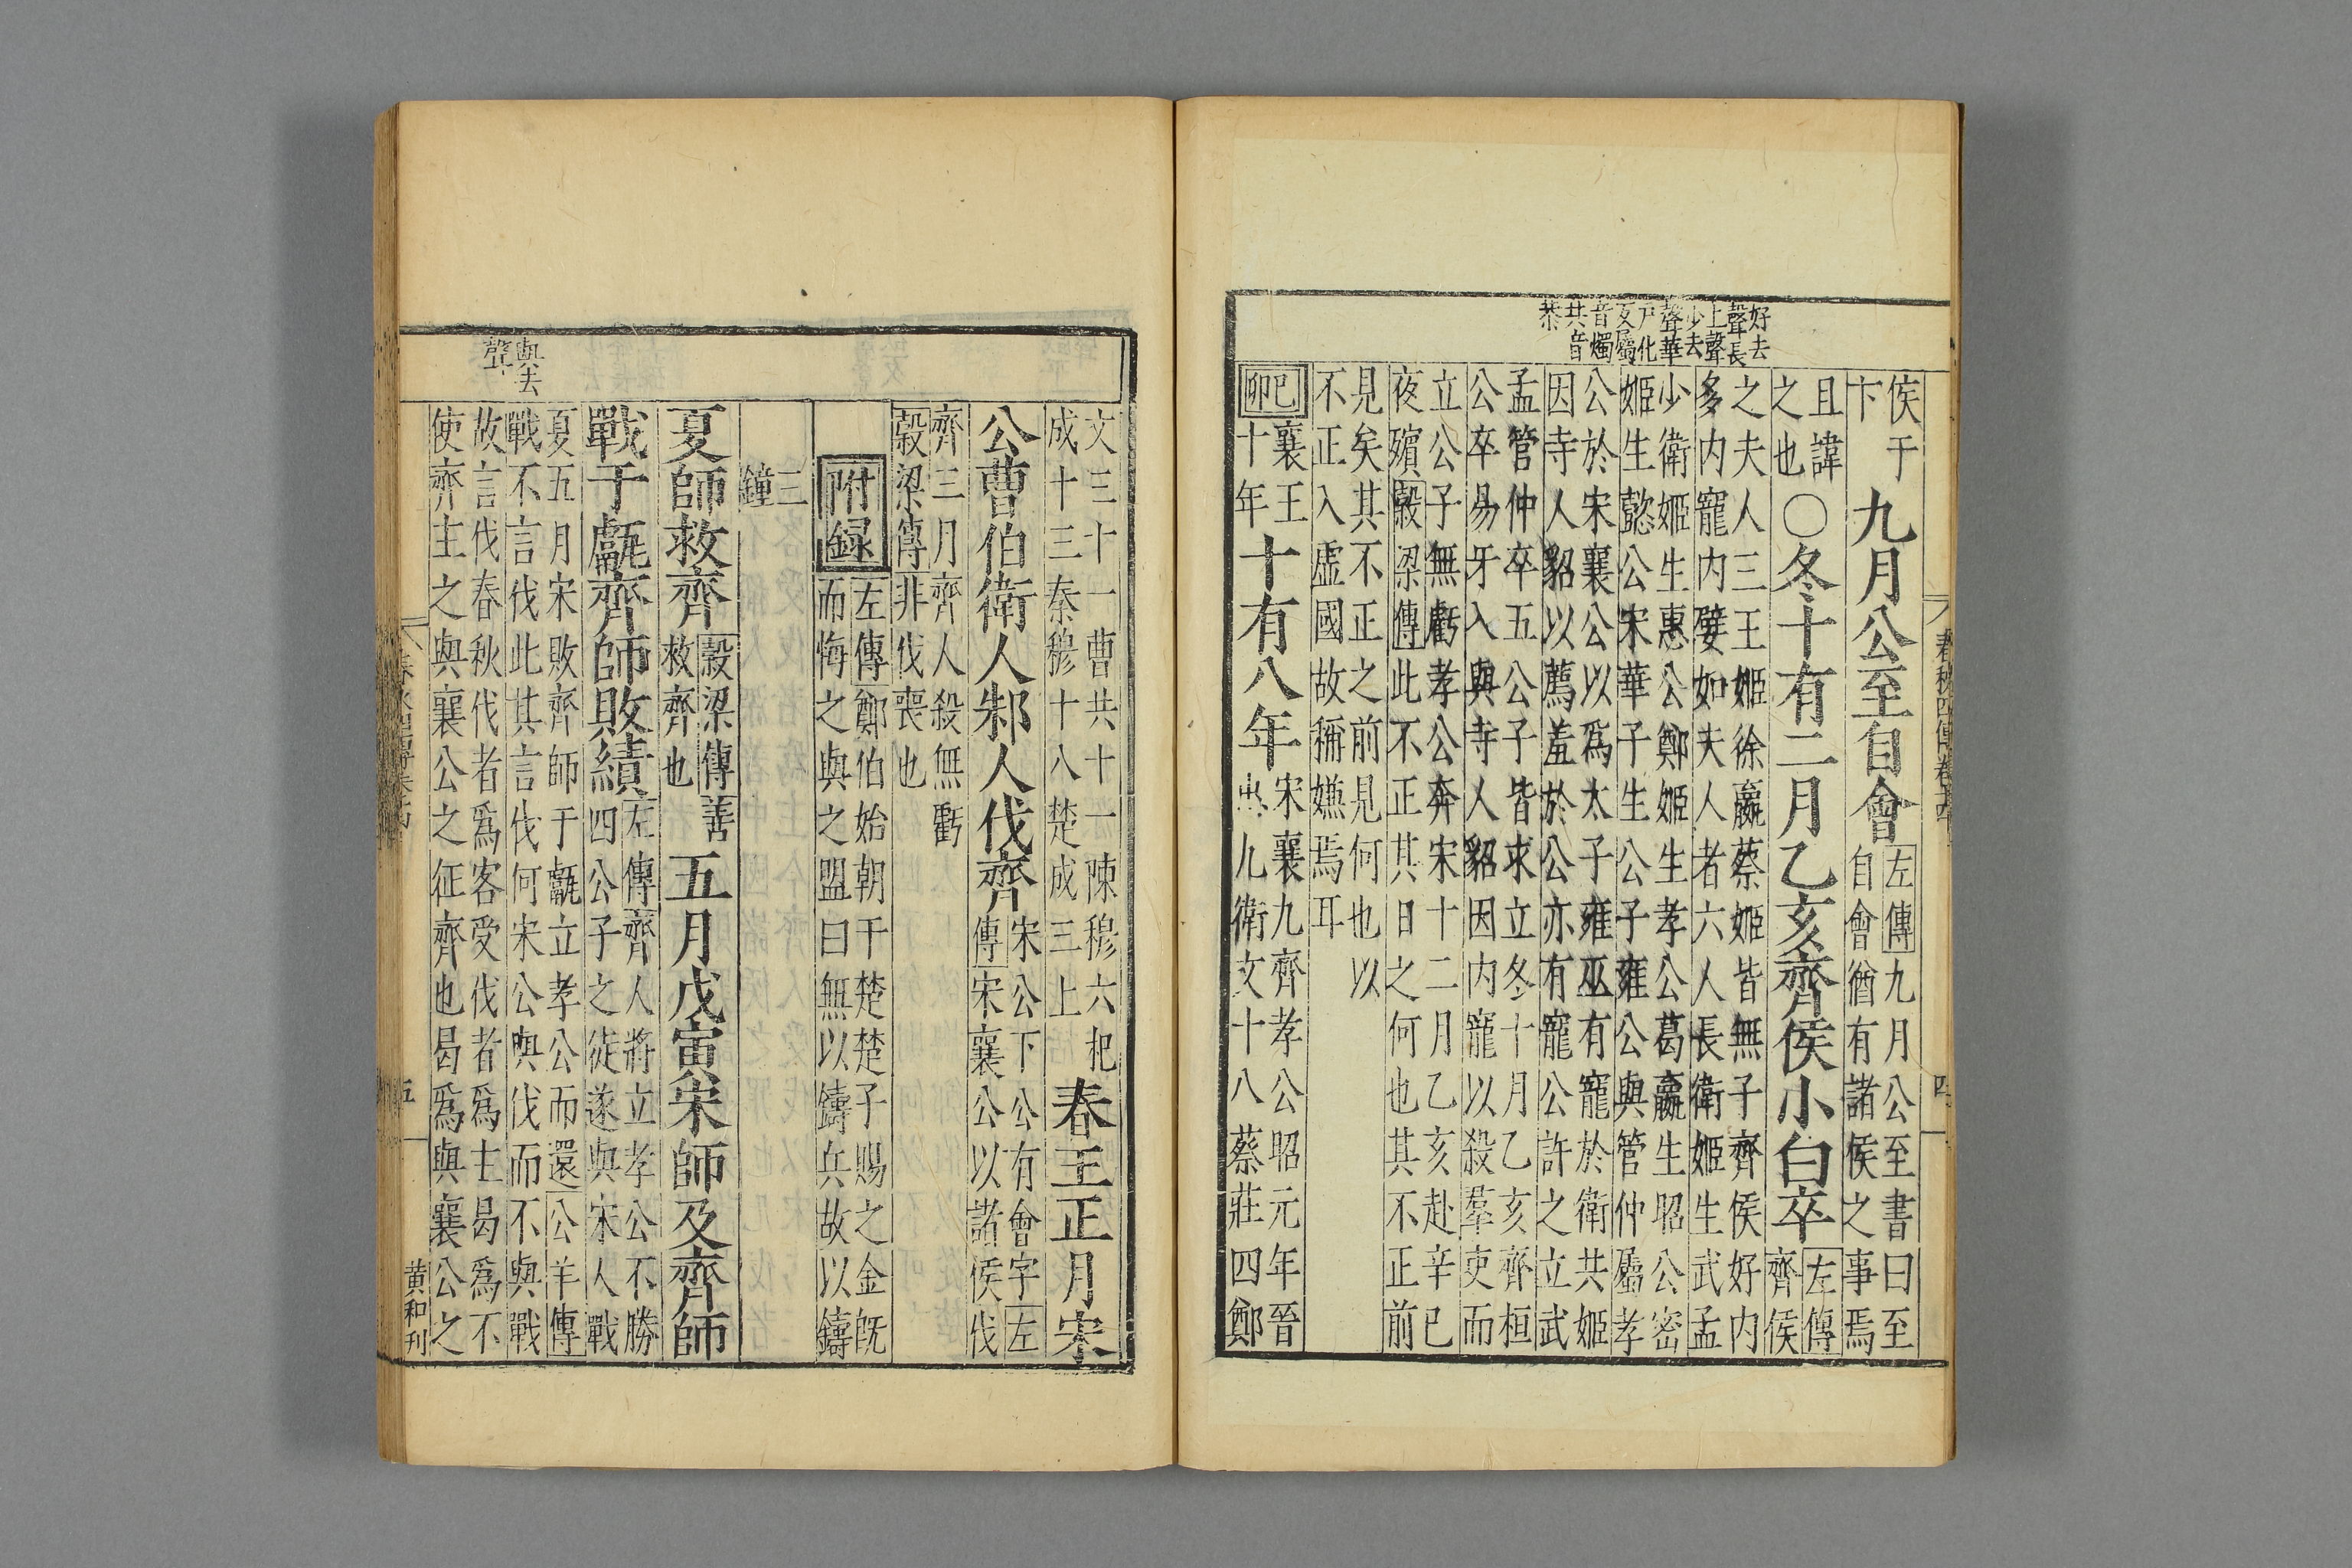 春秋四傳卷十四
四
好去
聲長
上聲
少去
聲華
戶化
反屬
音燭
共音
恭
侯于
卞
九月公至自會
左傳九月公至書曰至
自會猶有諸侯之事焉
且諱
之也
○冬十有二月乙亥齊侯小白卒
左傳
齊侯
之夫人三王姬徐嬴蔡姬皆無子齊侯好内
多内寵内嬖如夫人者六人長衛姬生武孟
少衛姬生惠公鄭姬生孝公葛嬴生昭公密
姬生懿公宋華子生公子雍公與管仲屬孝
公於宋襄公以爲太子雍巫有寵於衛共姬
因寺人貂以薦羞於公亦有寵公許之立武
孟管仲卒五公子皆求立冬十月乙亥齊桓
公卒易牙入與寺人貂因内寵以殺羣吏而
立公子無虧孝公奔宋十二月乙亥赴辛巳
夜殯穀梁傳此不正其日之何也其不正前
見矣其不正之前見何也以
不正入虛國故稱嫌焉耳
己卯
襄王
十年
十有八年
宋襄九齊孝公昭元年晉
惠九衛文十八蔡莊四鄭
與去
聲
文三十一曹共十一陳穆六杞
成十三秦穆十八楚成三上
春王正月宋
公曹伯衛人邾人伐齊
宋公下公有會字左
傳宋襄公以諸侯伐
齊三月齊人殺無虧
穀梁傳非伐喪也
附録
左傳鄭伯始朝于楚楚子賜之金既
而悔之與之盟曰無以鑄兵故以鑄
三
鐘
夏師救齊
穀梁傳善
救齊也
五月戊寅宋師及齊師
戰于甗齊師敗績
左傳齊人將立孝公不勝
四公子之徒遂與宋人戰
夏五月宋敗齊師于甗立孝公而還公羊傳
戰不言伐此其言伐何宋公與伐而不與戰
故言伐春秋伐者爲客受伐者爲主曷爲不
使齊主之與襄公之征齊也曷爲與襄公之
五
黄和刊